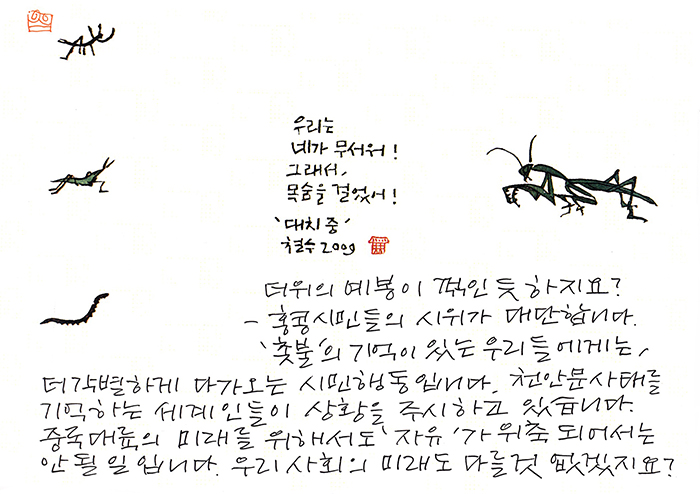 우리는
네가 무서워!
그래서,
목숨을 걸었어!
'대치 중'
철수 2009
더위의 예봉이 꺾인 듯 하지요?
- 홍콩시민들의 시위가 대단합니다.
'촛불'의 기억이 있는 우리들에게는,
더 각별하게 다가오는 시민행동입니다. 천안문사태를
기억하는 세계인들이 상황을 주시하고 있습니다.
중국대륙의 미래를 위해서도 '자유'가 위축 되어서는
안될 일입니다. 우리 사회의 미래도 다를것 없겠지요?